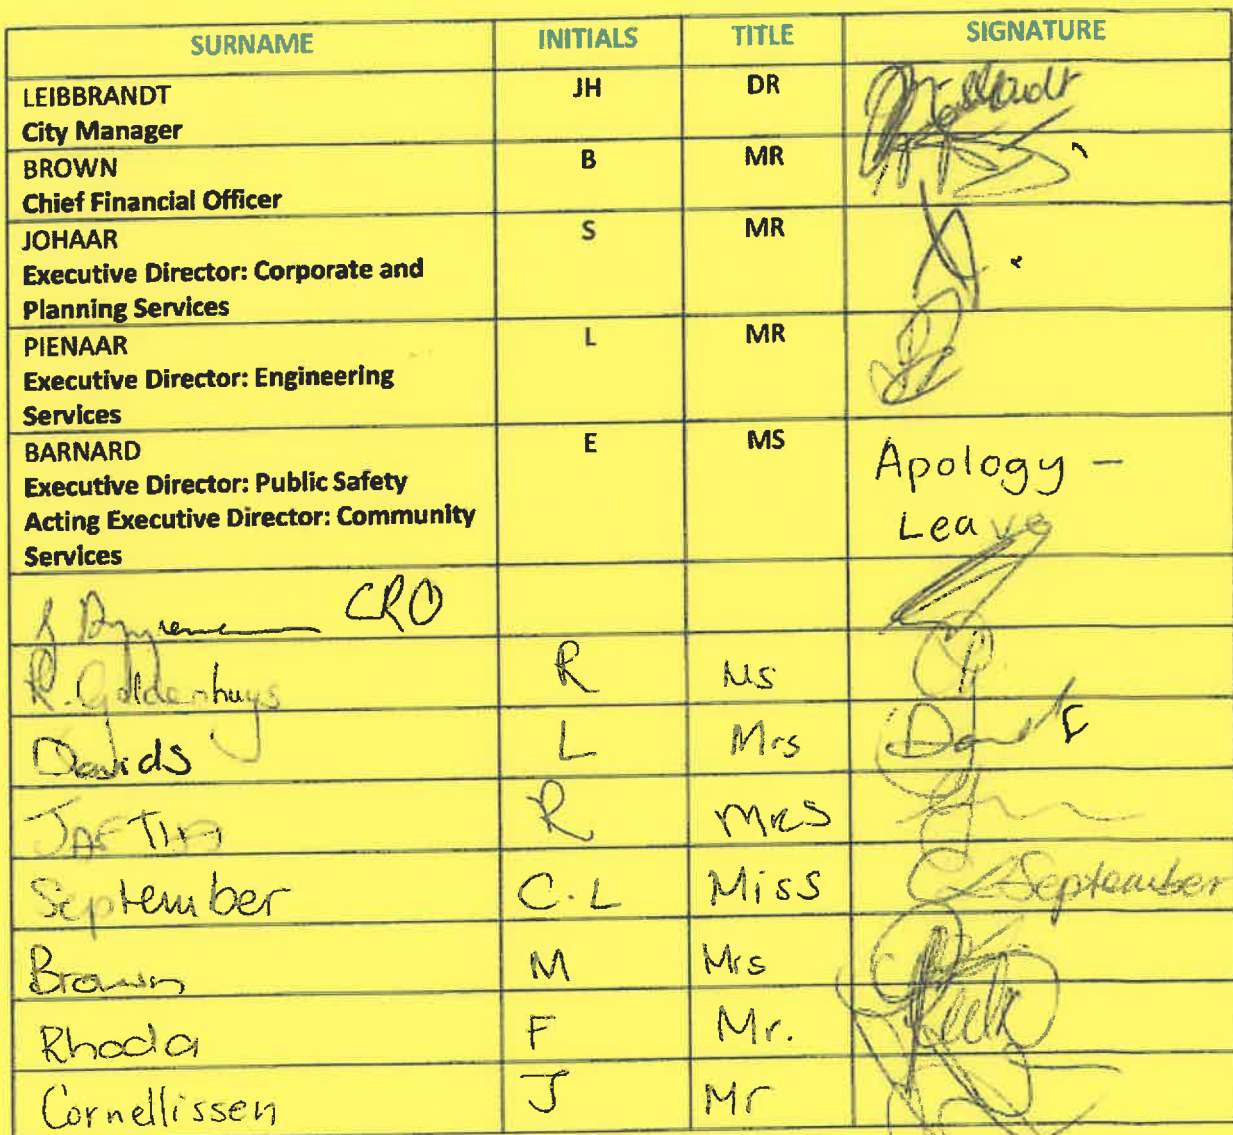 SURNAME INITIALS TITLE SIGNATURE
LEIBBRANDT JH DR
City Manager
BROWN B MR
Chief Financial Officer
JOHAAR S MR
Executive Director: Corporate and
Planning Services
PIENAAR L MR
Executive Director: Engineering
Services
BARNARD E MS Apology -
Executive Director: Public Safety Leave
Acting Executive Director: Community
Services
CRO
R. Geldenhuys R Ms
Davids L Mrs
JAFTHA R MRS
September C.L Miss C L September
Brown M Mrs
Rhoda F Mr.
Cornellissen J Mr